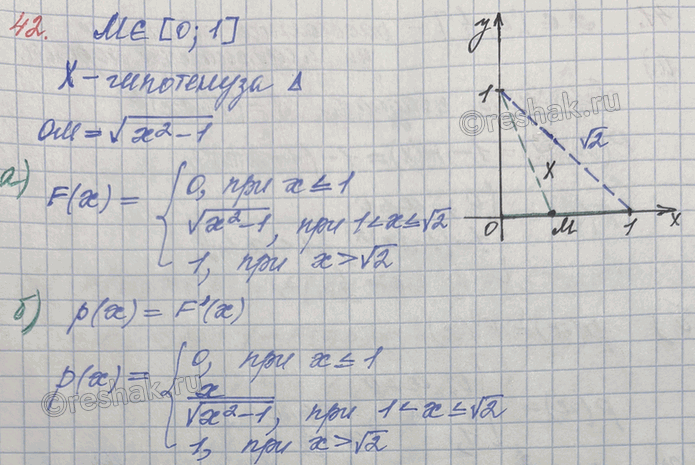 42. М ∈ [0; 1]
X – гипотенуза Δ
OM = √(x² − 1)
а) F(x) = { 0, при x ≤ 1
√(x² − 1), при 1 < x ≤ √2
1, при x > √2
б) p(x) = F'(x)
p(x) = { 0, при x ≤ 1
x/√(x² − 1), при 1 < x ≤ √2
1, при x > √2
y
1
√2
X
0
M
1
x
©reshak.ru
©reshak.ru